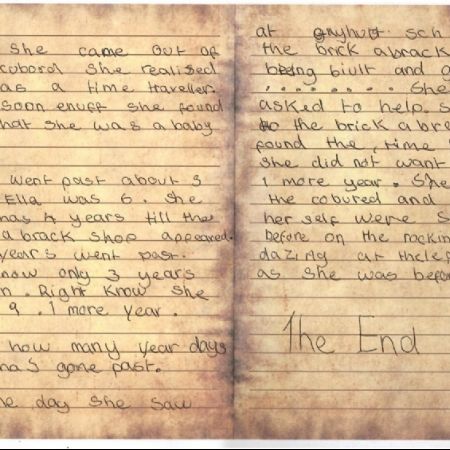 she came out of
cubord she realised
as a time traveller.
soon enuff she found
hat she was a baby
went past about 3
Ella was 6. she
has 4 years till the
a brack shop appeared.
years went past.
now only 3 years
n. Right know she
9. 1 more year.
how many year days
has gone past.
he day she saw
at sch
the brick abrack
being biult and
......... She
asked to help s
to the brick a bra
found the time
she did not want
1 more year. She
the cobured and
her self were s
before on the rockin
dazing at the
as she was befor
The End